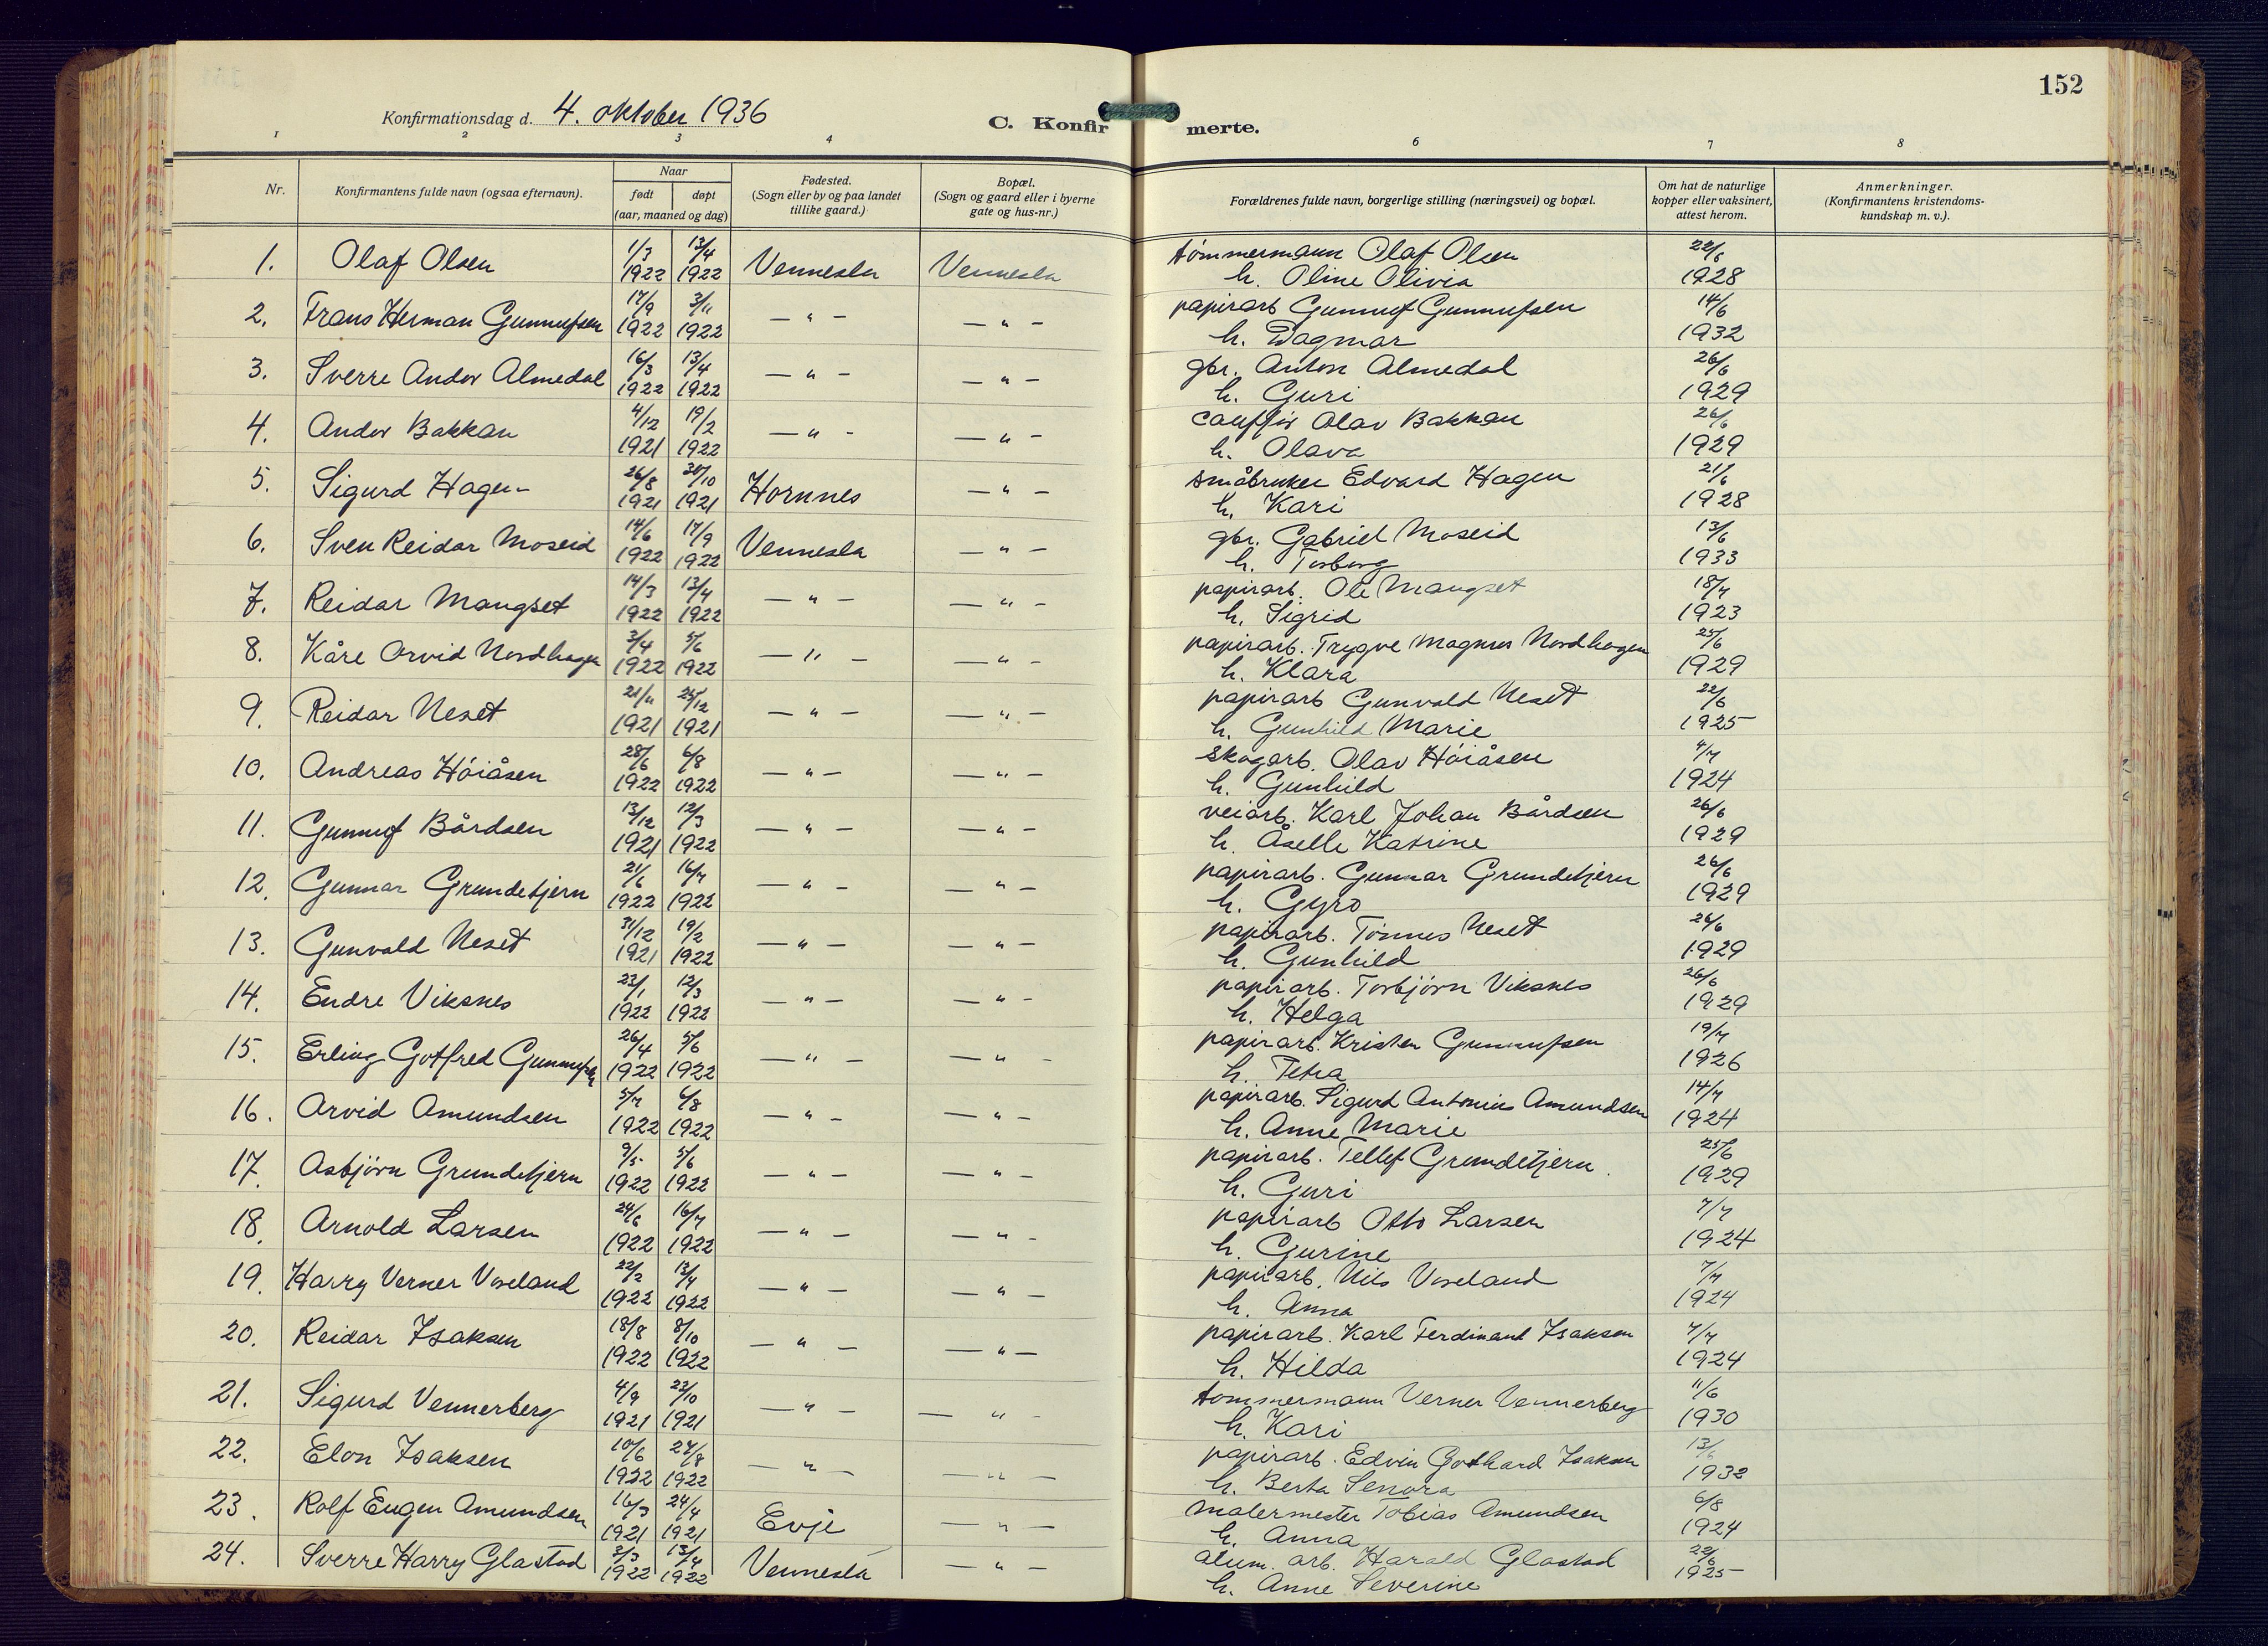 152
Konfirmationsdag d. 4. oktober 1936
C. Konfirmerte.
1 2 3 4 6 7 8
Nr. | Konfirmantens fulde navn (ogsaa efternavn). | Naar født døpt (aar, maaned og dag) | Fødested. (Sogn eller by og paa landet tillike gaard.) | Bopæl. (Sogn og gaard eller i byerne gate og hus-nr.) | Forældrenes fulde navn, borgerlige stilling (næringsvei) og bopæl. | Om hat de naturlige kopper eller vaksinert, attest herom. | Anmerkninger. (Konfirmantens kristendomskundskap m. v.).
1. Olaf Olsen 1/3 1922 13/4 1922 Vennesla Vennesla tömmermann Olaf Olsen h. Oline Olivia 22/6 1928
2. Frans Herman Gunnufsen 17/9 1922 3/11 1922 — " — — " — papirarb Gunnuf Gunnufsen h. Dagmar 14/6 1932
3. Sverre Andor Almedal 16/3 1922 13/4 1922 — " — — " — gbr. Anton Almedal h. Guri 26/6 1929
4. Andor Bakkan 4/12 1921 19/2 1922 — " — — " — Olav Bakkan h. Olava 26/6 1929
5. Sigurd Hagen 26/8 1921 30/10 1921 Hornnes — " — småbruker Edvard Hagen h. Kari 21/6 1928
6. Sven Reidar Moseid 14/6 1922 17/9 1922 Vennesla — " — gbr. Gabriel Moseid h. Torborg 13/6 1933
7. Reidar Mangset 14/3 1922 13/4 1922 — " — — " — papirarb. Ole Mangset h. Sigrid 18/7 1923
8. Kåre Arvid Nordhagen 3/4 1922 5/6 1922 — " — — " — papirarb. Trygve Magnus Nordhagen h. Klara 25/6 1929
9. Reidar Neset 21/11 1921 26/12 1921 — " — — " — papirarb Gunvald Neset h. Gunhild Marie 22/6 1925
10. Andreas Höiåsen 28/6 1922 6/8 1922 — " — — " — skogarb. Olav Höiåsen h. Gunhild 4/7 1924
11. Gunnuf Bårdsen 13/12 1921 12/3 1922 — " — — " — veiarb. Karl Johan Bårdsen h. Åselle Katrine 26/6 1929
12. Gunnar Grundetjern 21/6 1922 16/7 1922 — " — — " — papirarb. Gunnar Grundetjern h. Gyro 26/6 1929
13. Gunvald Neset 31/12 1921 19/2 1922 — " — — " — papirarb. Tönnes Neset h. Gunhild 26/6 1929
14. Endre Viksnes 23/1 1922 12/3 1922 — " — — " — papirarb. Torbjörn Viksnes h. Helga 26/6 1929
15. Erling Gotfred Gunnufsen 26/4 1922 5/6 1922 — " — — " — papirarb. Kristen Gunnufsen h. Tetra 19/7 1926
16. Arvid Amundsen 5/7 1922 6/8 1922 — " — — " — papirarb. Sigurd Antonius Amundsen h. Anne Marie 14/7 1924
17. Asbjörn Grundetjern 9/5 1922 5/6 1922 — " — — " — papirarb. Tellef Grundetjern. h. Guri 25/6 1929
18. Arnold Larsen 24/6 1922 16/7 1922 — " — — " — papirarb Otto Larsen h. Gurine 7/7 1924
19. Harry Verner Voseland 22/2 1922 13/4 1922 — " — — " — papirarb. Nils Voseland h. Anna 7/7 1924
20. Reidar Isaksen 18/8 1922 8/10 1922 — " — — " — papirarb. Karl Ferdinand Isaksen h. Hilda 7/7 1924
21. Sigurd Vennerberg 4/9 1921 23/10 1921 — " — — " — tömmermann Verner Vennerberg h. Kari 11/6 1930
22. Elon Isaksen 10/6 1922 27/8 1922 — " — — " — papirarb. Edvin Gothard Isaksen h. Berta Senora 13/6 1932
23. Rolf Eugen Amundsen 16/3 1921 24/4 1921 Evje — " — malermester Tobias Amundsen h. Anna 6/8 1924
24. Sverre Harry Glastad 3/3 1922 13/4 1922 Vennesla — " — alum. arb. Harald Glastad h. Anne Severine 22/6 1925